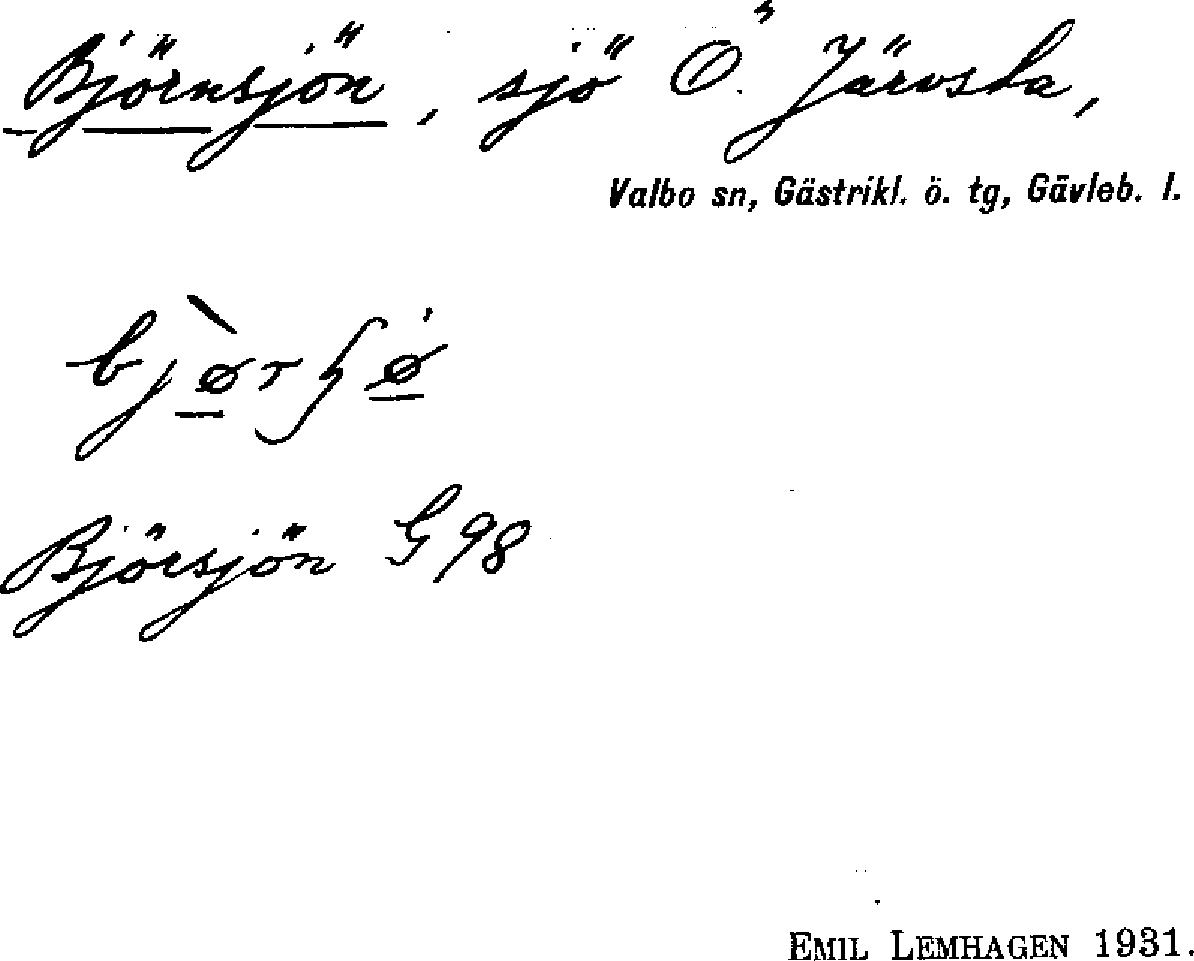 Björnsjön, sjö Ö. Järvsta,
Valbo sn, Gästrikl. ö. tg, Gävleb. l.
Björsjön G 98
EMIL LEMHAGEN 1931.